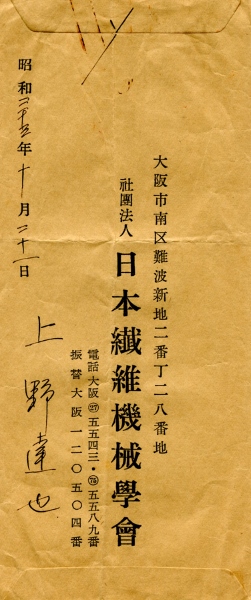 大阪市南区難波新地二番丁二八番地
社團法人 日本纖維機械學會
電話大阪㉗五五四三・㊆五五八九番
振替大阪一二〇五〇四番
上野達也
昭和二十五年十月二十一日